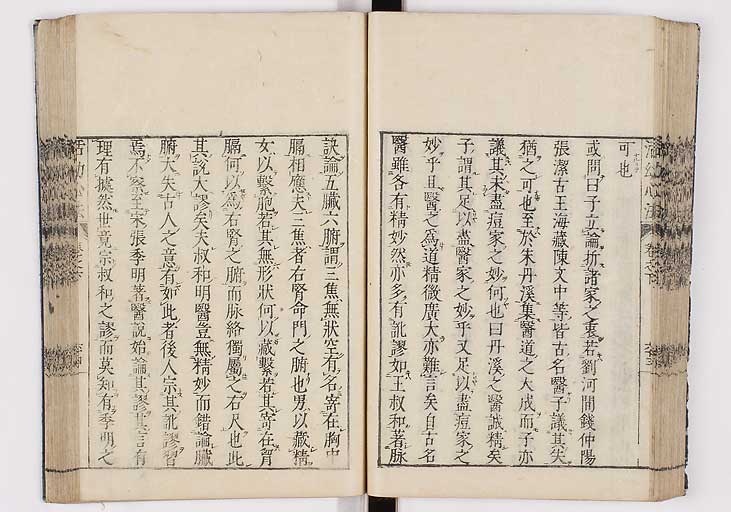 可也
或問曰子立論折諸家之衷若劉河間錢仲陽
張潔古王海藏陳文中等皆古名醫子議其失
猶之可也至於朱丹溪集醫道之大成而子亦
議其未盡痘家之妙何也曰丹溪之醫誠精矣
子謂其足以盡醫家之妙乎又足以盡痘家之
妙乎且醫之為道精微廣大亦難言矣自古名
醫雖各有精妙然亦多有訛謬如王叔和著脉
訣論五臟六腑謂三焦無狀空有名寄在胸中
膈相應夫三焦者右腎命門之腑也男以藏精
女以繫胞若其無形狀何以藏繫若其寄在胷
膈何以為右腎之腑而脉絡獨屬之右尺也此
其說大謬矣夫叔和明醫豈無精妙而錯論臟
腑大失古人之意有如此者後人宗其訛謬習
焉不察至宋張季明著醫說始論其謬其言有
理有據然世竟宗叔和之謬而莫知有季明之
活幼心法